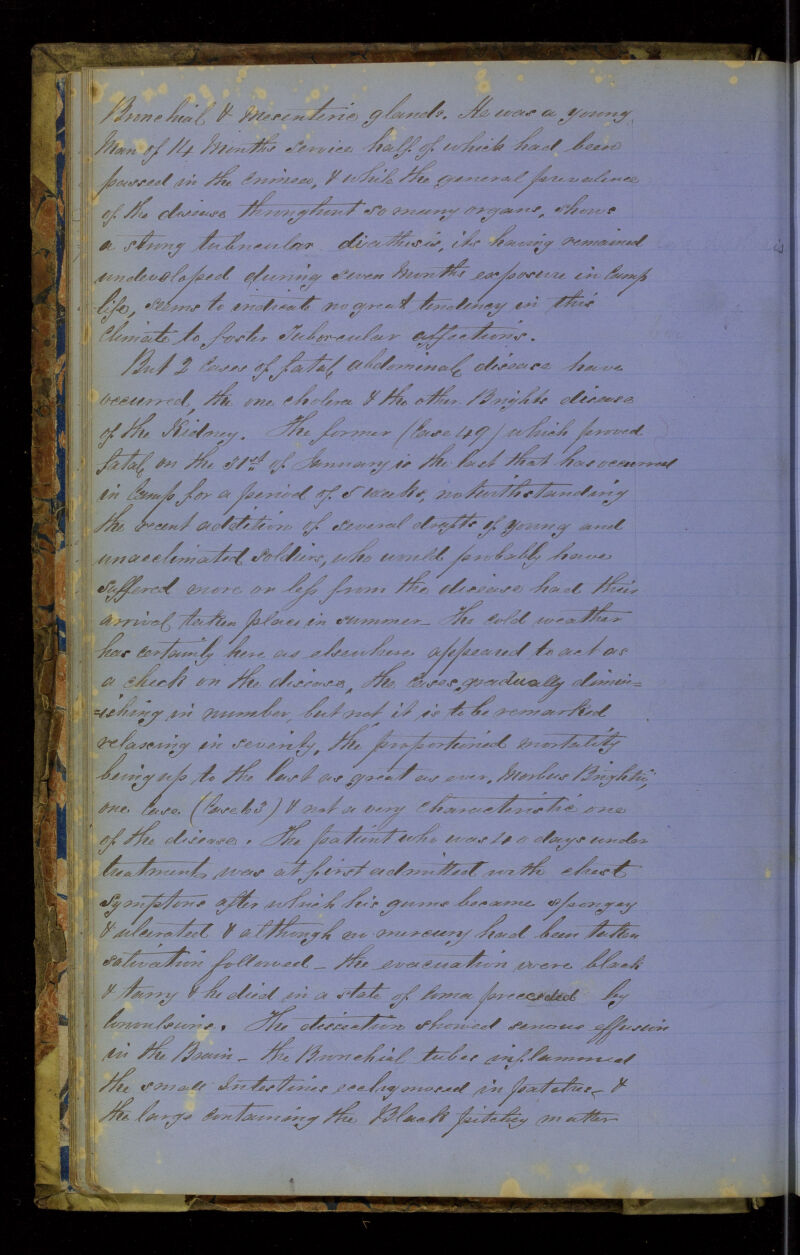 Bronchial & Mesenteric glands. He was a young
Man of 14 Months Service half of which had been
passed in the Crimea, & while the general prevalence
of the disease throughout so many organs, shows
a strong tubercular diathesis, its having remained
undeveloped during seven Months exposure in Camp
life, seems to indicate no great tendency in this
Climate to foster Tubercular affections.
But 2 Cases of fatal abdominal disease have
occurred, the one cholera & the other Brights disease
of the Kidney. The former (Case 49) which proved
fatal on the 31st of January is the last that has occurred
in Camp for a period of 5 weeks, notwithstanding
the recent addition of several drafts of young and
unacclimated soldiers, who would probably have
suffered more or less from the disease had their
arrival taken place in summer - The cold weather
has certainly here as elsewhere appeared to act as
a check on the disease, the Cases gradually dimin=
=ishing in number, but not it is to be remarked
relaxing in severity, the proportioned mortality
being up to the last as great as ever. Morbus Brightii,
one Case (Case 63) & not a very Characteristic one
of the disease. The patient who was 40 days under
treatment was at first admitted with chest
symptoms after which his gums became spongey
& ulcerated & although no mercury had been taken
salivation followed - the evacuation were black
& tarry & he died in a state of Coma preceeded by
Convulsions. The dissection showed serous effusion
in the Brain - the Bronchial tubes inflammed
the small Intestines ecchymosed in patches - &
the large containing the Black pitchy matter